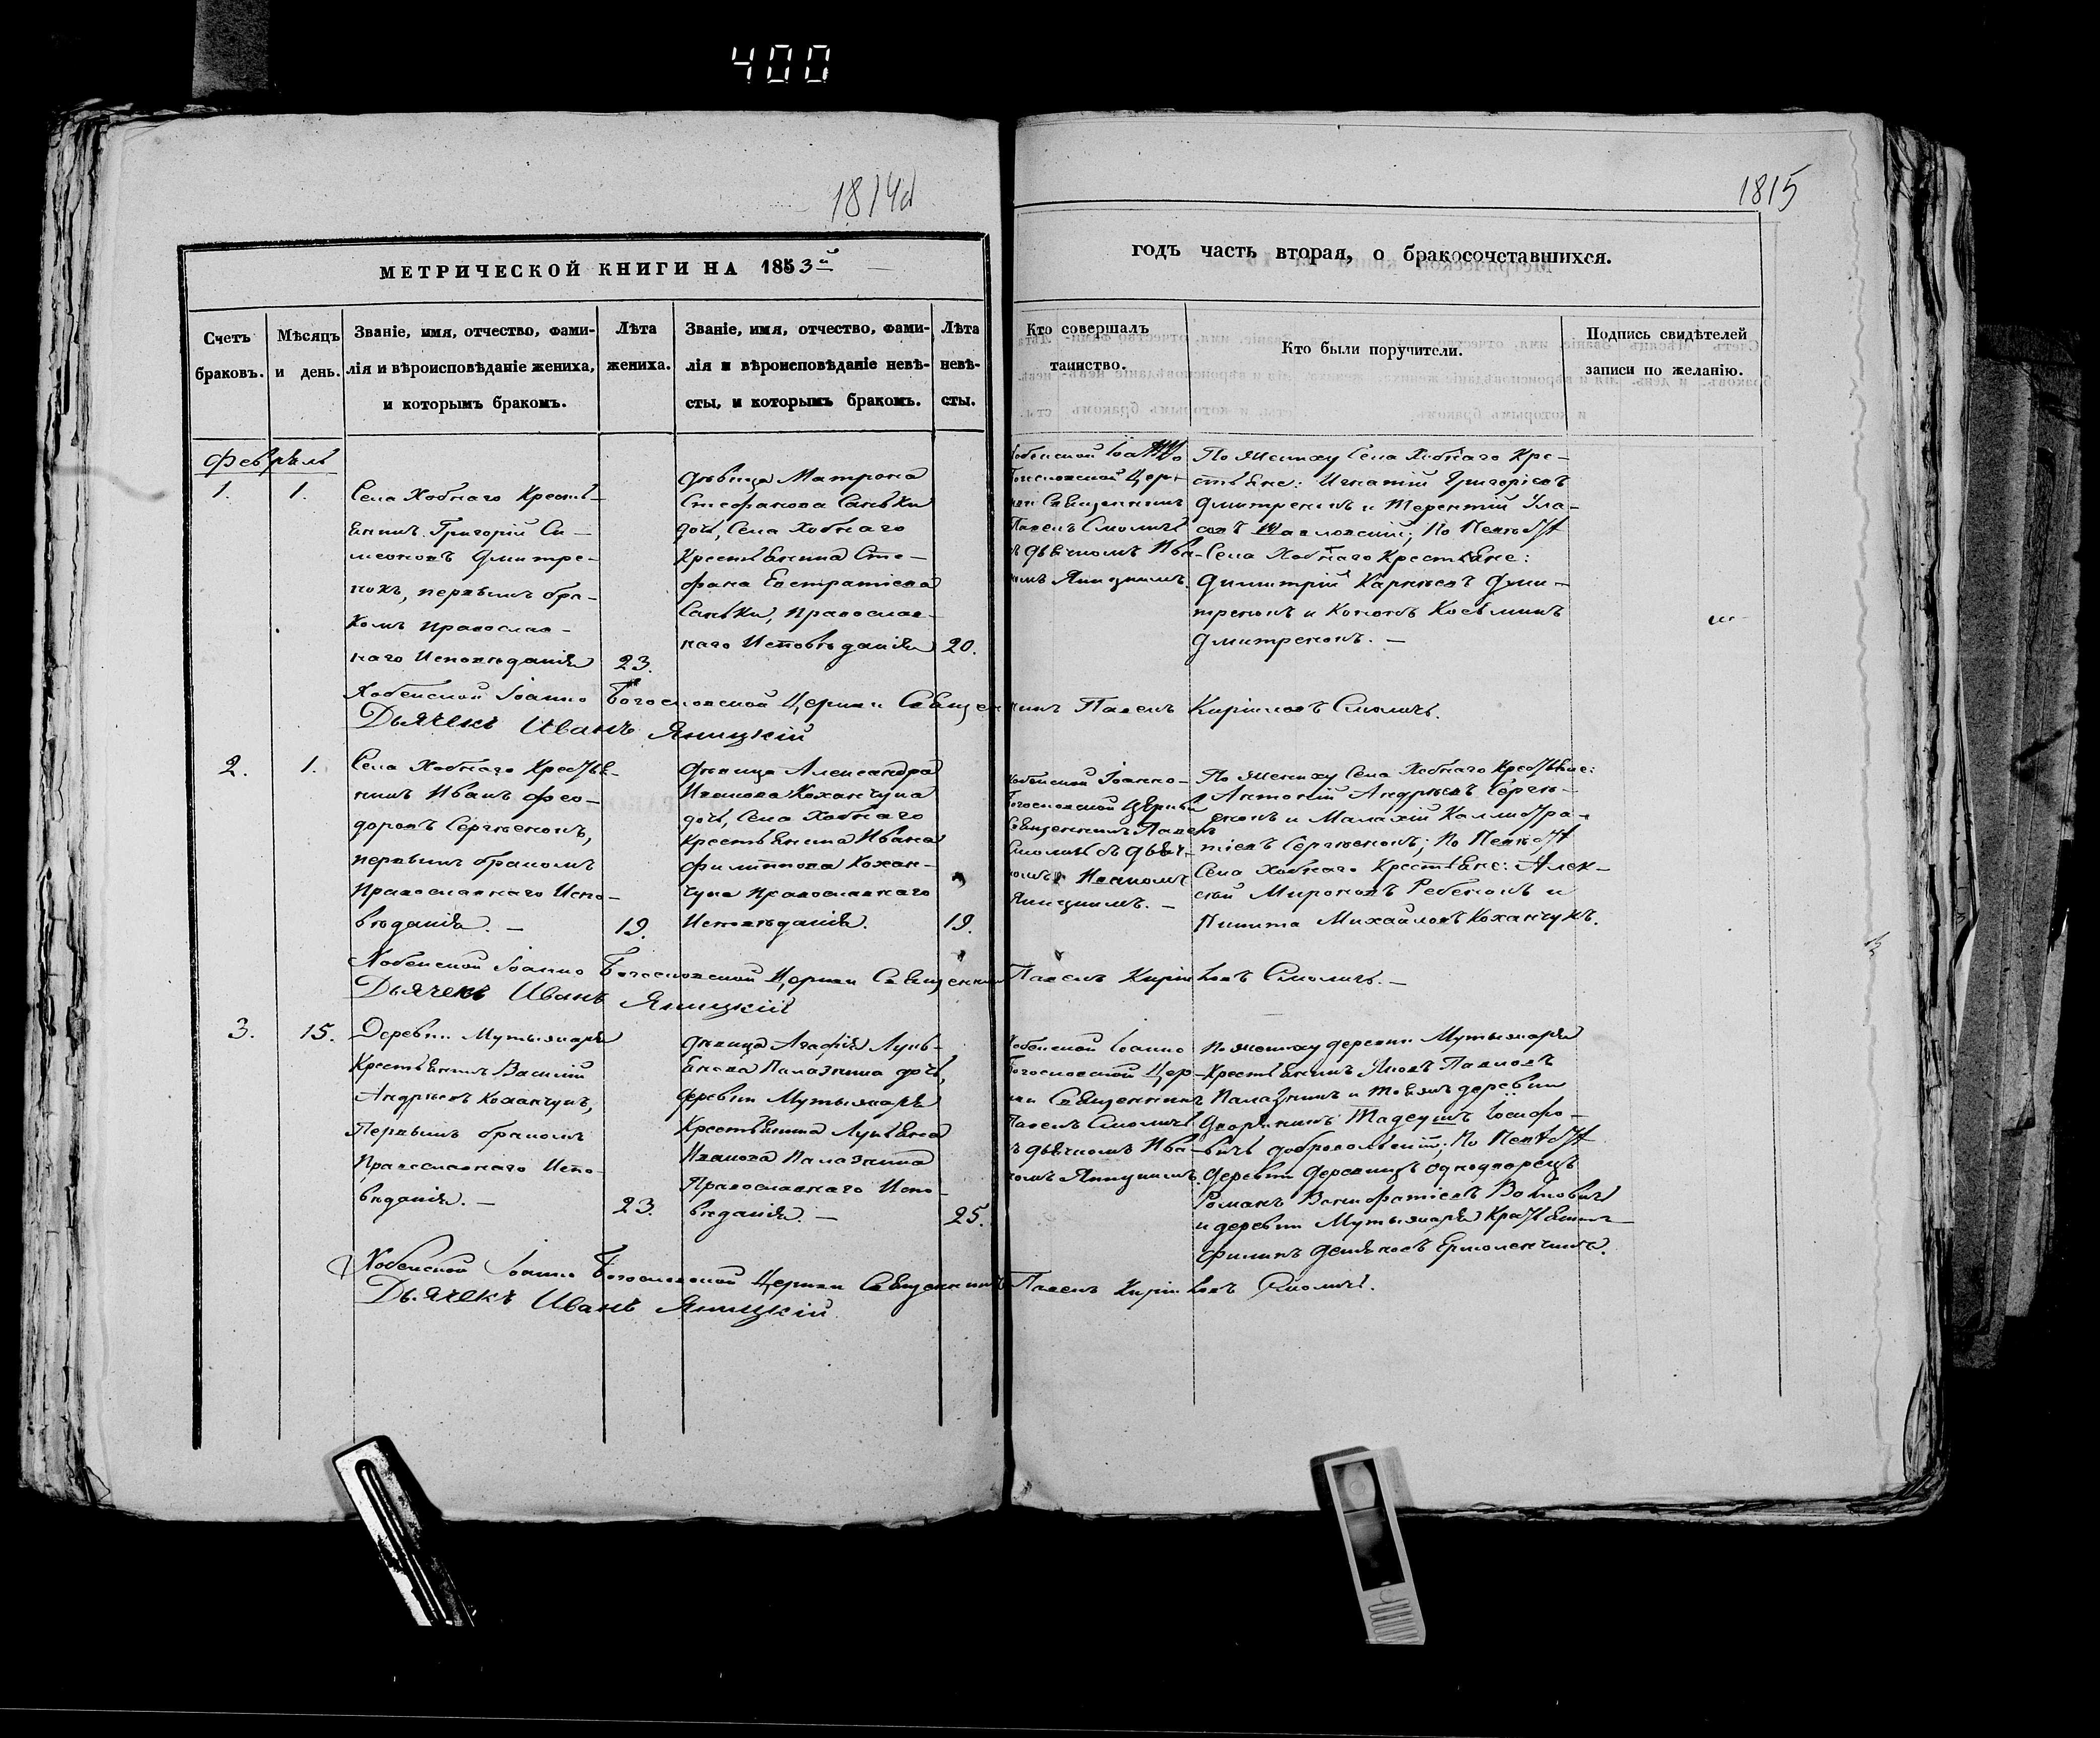 400
1814об
1815
МЕТРИЧЕСКОЙ КНИГИ НА 1853й
годъ часть вторая, о бракосочетавшихся.
Счетъ браковъ.
Мѣсяцъ и день.
Званіе, имя, отчество, фами-
лія и вѣроисповѣданіе жениха,
и которымъ бракомъ.
Лѣта
жениха.
Званіе, имя, отчество, фами-
лія и вѣроисповѣданіе невѣ-
сты, и которымъ бракомъ.
Лѣта
невѣ-
сты.
Кто совершалъ
таинство.
Кто были поручители.
Подпись свидѣтелей
записи по желанію.
Февраль
1.
1.
Села Хобнаго Кресть-
янинъ Григорій Си-
меоновъ Дмитре-
нокъ, первымъ бра-
комъ православ-
наго Исповѣданія
23.
дѣвица Матрона
Стефанова Санько
дочь, Села Хобнаго
Крестьянина Сте-
фана Евстратіева
Саньки, Православ-
наго Исповѣданія
20.
Богословской Церк-
ви Священникъ
Павелъ Смоличъ
съ дьячкомъ Ива-
номъ Яницкимъ.
По Жениху Села Хобнаго Кре-
стьяне: Игнатій Григоріевъ
Дмитренокъ и Терентій Вла-
совъ; По Невѣстѣ
Села Хобнаго Крестьяне:
Димитрій Карнѣевъ Дми-
тренокъ и Кононъ Косьминъ
Дмитренокъ. —
Хобенской Іоанно Богословской Церкви Священникъ Павелъ Кириловъ Смоличъ.
Дьячекъ Иванъ Яницкій
2.
1.
Села Хобнаго Крестья-
нинъ Иванъ Фео-
доровъ Сергѣенокъ,
первымъ бракомъ
Православнаго Испо-
вѣданія. —
19.
дѣвица Александра
Иванова Коханчука
дочь, Села Хобнаго
Крестьянина Ивана
Филиппова Кохан-
чука Православнаго
Исповѣданія.
19.
Хобенской Іоанно-
Богословской Церкви
Священникъ Павелъ
Смоличъ съ дьяч-
комъ Иваномъ
Яницкимъ. —
По Жениху Села Хобнаго Крестьяне:
Антоній Андреевъ Сергѣ-
енокъ и Малахій Каллистра-
тіевъ Сергѣенокъ; По Невѣстѣ
Села Хобнаго Крестьяне: Алек-
сѣй Мироновъ Ребенокъ и
Никита Михайловъ Коханчукъ.
Хобенской Іоанно Богословской Церкви Священникъ Павелъ Кириловъ Смоличъ. —
Дьячекъ Иванъ Яницкій
3.
15.
Деревни Мутыжаря
Крестьянинъ Василій
Андреевъ Коханчукъ,
Первымъ бракомъ
Православнаго Испо-
вѣданія. —
23.
дѣвица Агафія Лукь-
янова Палазкина дочь,
деревни Мутыжаря
Крестьянина Лукьяна
Иванова Палазкина
Православнаго Испо-
вѣданія. —
25.
Хобенской Іоанно
Богословской Цер-
кви Священникъ
Павелъ Смоличъ
съ дьячкомъ Ива-
номъ Яницкимъ.
По жениху деревни Мутыжаря
Крестьянинъ Яковъ Павловъ
Палазкинъ и тояжъ деревни
Дворянинъ Тадеушъ Іосифо-
вичъ; По Невѣстѣ
деревни однодворецъ
Романъ Вонифатіевъ Войновичъ
и деревни Мутыжаря Крестьянинъ
Филипъ Ермоленчикъ.
Хобенской Іоанно Богословской Церкви Священникъ Павелъ Кириловъ Смоличъ.
Дьячекъ Иванъ Яницкій